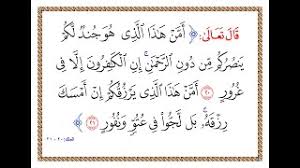 قَالَ تَعَالَىٰ: ﴿ أَمَّنْ هَٰذَا الَّذِي هُوَ جُندٌ لَّكُمْ
يَنصُرُكُم مِّن دُونِ الرَّحْمَٰنِ ۚ إِنِ الْكَافِرُونَ إِلَّا فِي
غُرُورٍ ٢٠ أَمَّنْ هَٰذَا الَّذِي يَرْزُقُكُمْ إِنْ أَمْسَكَ
رِزْقَهُ ۚ بَل لَّجُّوا فِي عُتُوٍّ وَنُفُورٍ ٢١ ﴾ الملك: ٢٠ - ٢١